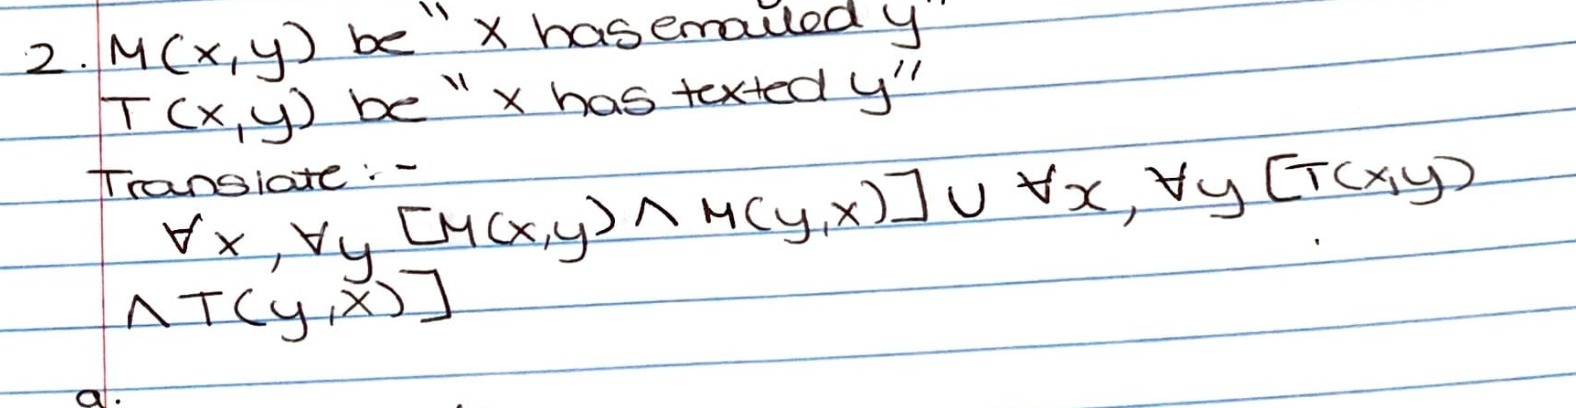 2. M(x,y) be "x has emailed y"
T(x,y) be "x has texted y"
Translate :-
∀x, ∀y [M(x,y) ∧ M(y,x)] ∪ ∀x, ∀y [T(x,y)
∧ T(y,x)]
a.